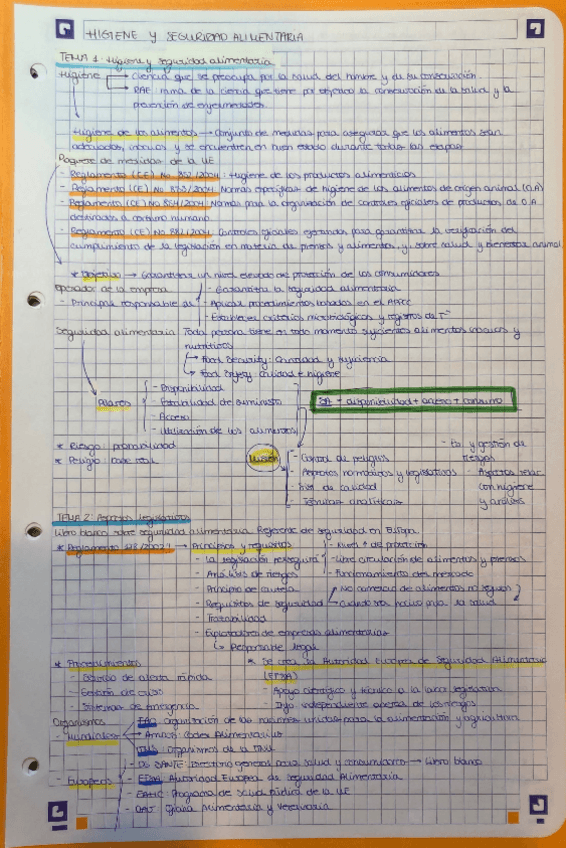 HIGIENE Y SEGURIDAD ALIMENTARIA
TEMA 1: Higiene y seguridad alimentaria
Higiene → Ciencia que se preocupa por la salud del hombre y de su conservación.
→ RAE: rama de la ciencia que tiene por objetivo la conservación de la salud y la
prevención de enfermedades.
Higiene de los alimentos → Conjunto de medidas para asegurar que los alimentos sean
adecuados, inocuos y se encuentren en buen estado durante todas las etapas
Paquete de medidas de la UE
- Reglamento (CE) No 852/2004: Higiene de los productos alimenticios
- Reglamento (CE) No 853/2004: Normas específicas de higiene de los alimentos de origen animal (O.A)
- Reglamento (CE) No 854/2004: Normas para la organización de controles oficiales de productos de O.A
destinados a consumo humano
- Reglamento (CE) No 882/2004: Controles oficiales efectuados para garantizar la verificación del
cumplimiento de la legislación en materia de piensos y alimentos, y sobre salud y bienestar animal
* Objetivo → Garantizar un nivel elevado de protección de los consumidores
Operador de la empresa - Garantiza la seguridad alimentaria
- Principal responsable de - Aplicar procedimientos basados en el APPCC
- Establecer criterios microbiológicos y registros de Tª
Seguridad alimentaria: Toda persona tiene en todo momento suficientes alimentos inocuos y
nutritivos
→ Food Security: Cantidad y suficiencia
→ Food Safety: calidad e higiene
Pilares
- Disponibilidad
- Estabilidad de suministro
- Acceso
- Utilización de los alimentos
SA = disponibilidad + acceso + consumo
* Riesgo: probabilidad
* Peligro:
Misión
- Control de peligros
- Aspectos normativos y legislativos
- de calidad
- Técnicas analíticas
- Ev. y gestión de
riesgos
Aspectos
con higiene
y análisis
TEMA 2: Aspectos legislativos
Libro blanco sobre seguridad alimentaria: Referente de seguridad en Europa
* Reglamento 178/2002: → Principios y requisitos - Nivel ↑ de protección
- La legislación persegurá - Libre circulación de alimentos y piensos
- Análisis de riesgos - Funcionamiento del mercado
- Principio de cautela - No comercio de alimentos no seguros
- Requisitos de seguridad - Cuando sea nocivo para la salud
- Trazabilidad
- Explotadores de empresas alimentarias
↳ Responsable legal
* Procedimientos
- Sistema de alerta rápida
- Gestión de crisis
- Sistemas de emergencia
* Se crea la Autoridad Europea de Seguridad Alimentaria
(EFSA)
- Apoyo científico y técnico a la labor legislativa
- Info independiente acerca de los riesgos
Organismos
- Mundiales
FAO: Organización de las naciones unidas para la alimentación y agricultura
→ Codex Alimentarius
OMS: Organismos de la ONU
- Europeos
- DG SANTE: Directorio general para salud y consumidores → Libro blanco
- EFSA: Autoridad Europea de Seguridad Alimentaria
- EAHC: Programa de Salud Pública de la UE
- OAV: Oficina Alimentaria y Veterinaria